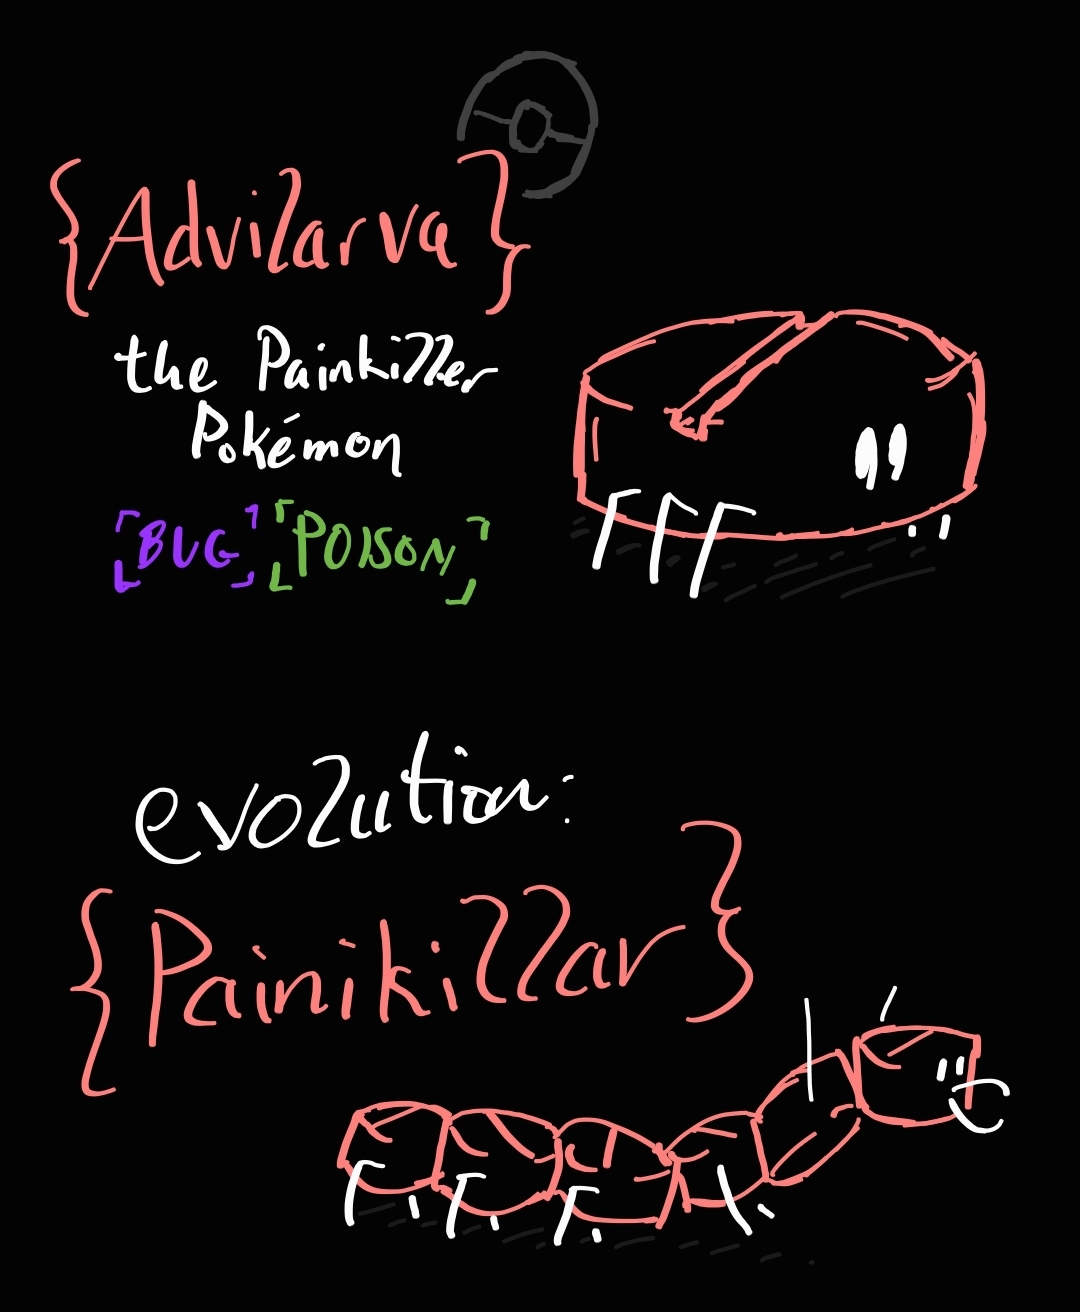 {Advilarva}
the Painkiller
Pokémon
[BUG] [POISON]
evolution:
{Painikillar}